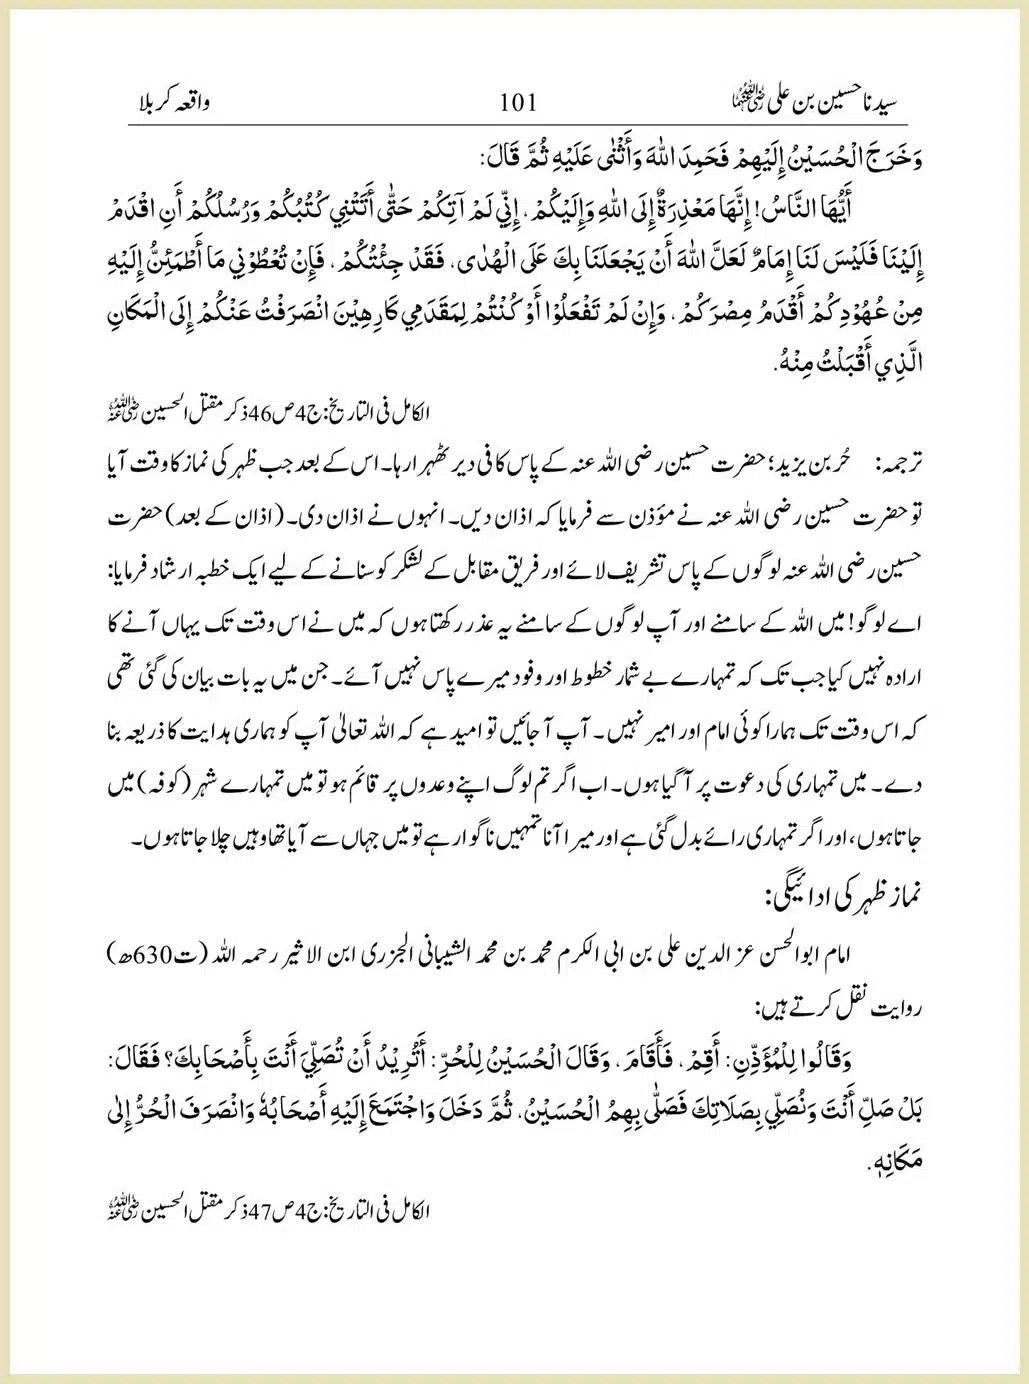 سیدنا حسین بن علی رضی اللہ عنہما 101 واقعہ کربلا
وَخَرَجَ الْحُسَيْنُ إِلَيْهِمْ فَحَمِدَ اللهَ وَأَثْنٰى عَلَيْهِ ثُمَّ قَالَ:
أَيُّهَا النَّاسُ! إِنَّهَا مَعْذِرَةٌ إِلَى اللهِ وَإِلَيْكُمْ، إِنِّي لَمْ آتِكُمْ حَتّٰى أَتَتْنِي كُتُبُكُمْ وَرُسُلُكُمْ أَنِ اقْدَمْ
إِلَيْنَا فَلَيْسَ لَنَا إِمَامٌ لَعَلَّ اللهَ أَنْ يَجْعَلَنَا بِكَ عَلَى الْهُدٰى، فَقَدْ جِئْتُكُمْ، فَإِنْ تُعْطُوْنِي مَا أَطْمَئِنُّ إِلَيْهِ
مِنْ عُهُوْدِكُمْ أَقْدَمُ مِصْرَكُمْ، وَإِنْ لَمْ تَفْعَلُوْا أَوْ كُنْتُمْ لِمَقْدَمِي كَارِهِيْنَ انْصَرَفْتُ عَنْكُمْ إِلَى الْمَكَانِ
الَّذِي أَقْبَلْتُ مِنْهُ.
الکامل فی التاریخ: ج4 ص46 ذکر مقتل الحسین رضی اللہ عنہ
ترجمہ: حُر بن یزید؛ حضرت حسین رضی اللہ عنہ کے پاس کافی دیر ٹھہرا رہا۔ اس کے بعد جب ظہر کی نماز کا وقت آیا
تو حضرت حسین رضی اللہ عنہ نے مؤذن سے فرمایا کہ اذان دیں۔ انہوں نے اذان دی۔ (اذان کے بعد) حضرت
حسین رضی اللہ عنہ لوگوں کے پاس تشریف لائے اور فریق مقابل کے لشکر کو سنانے کے لیے ایک خطبہ ارشاد فرمایا:
اے لوگو! میں اللہ کے سامنے اور آپ لوگوں کے سامنے یہ عذر رکھتا ہوں کہ میں نے اس وقت تک یہاں آنے کا
ارادہ نہیں کیا جب تک کہ تمہارے بے شمار خطوط اور وفود میرے پاس نہیں آئے۔ جن میں یہ بات بیان کی گئی تھی
کہ اس وقت تک ہمارا کوئی امام اور امیر نہیں۔ آپ آ جائیں تو امید ہے کہ اللہ تعالیٰ آپ کو ہماری ہدایت کا ذریعہ بنا
دے۔ میں تمہاری کی دعوت پر آ گیا ہوں۔ اب اگر تم لوگ اپنے وعدوں پر قائم ہو تو میں تمہارے شہر (کوفہ) میں
جاتا ہوں، اور اگر تمہاری رائے بدل گئی ہے اور میرا آنا تمہیں ناگوار ہے تو میں جہاں سے آیا تھا وہیں چلا جاتا ہوں۔
نماز ظہر کی ادائیگی:
امام ابو الحسن عز الدین علی بن ابی الکرم محمد بن محمد الشیبانی الجزری ابن الاثیر رحمہ اللہ (ت630ھ)
روایت نقل کرتے ہیں:
وَقَالُوا لِلْمُؤَذِّنِ: أَقِمْ، فَأَقَامَ، وَقَالَ الْحُسَيْنُ لِلْحُرِّ: أَتُرِيْدُ أَنْ تُصَلِّيَ أَنْتَ بِأَصْحَابِكَ؟ فَقَالَ:
بَلْ صَلِّ أَنْتَ وَنُصَلِّي بِصَلَاتِكَ فَصَلّٰى بِهِمُ الْحُسَيْنُ، ثُمَّ دَخَلَ وَاجْتَمَعَ إِلَيْهِ أَصْحَابُهٗ وَانْصَرَفَ الْحُرُّ إِلٰى
مَكَانِهٖ.
الکامل فی التاریخ: ج4 ص47 ذکر مقتل الحسین رضی اللہ عنہ